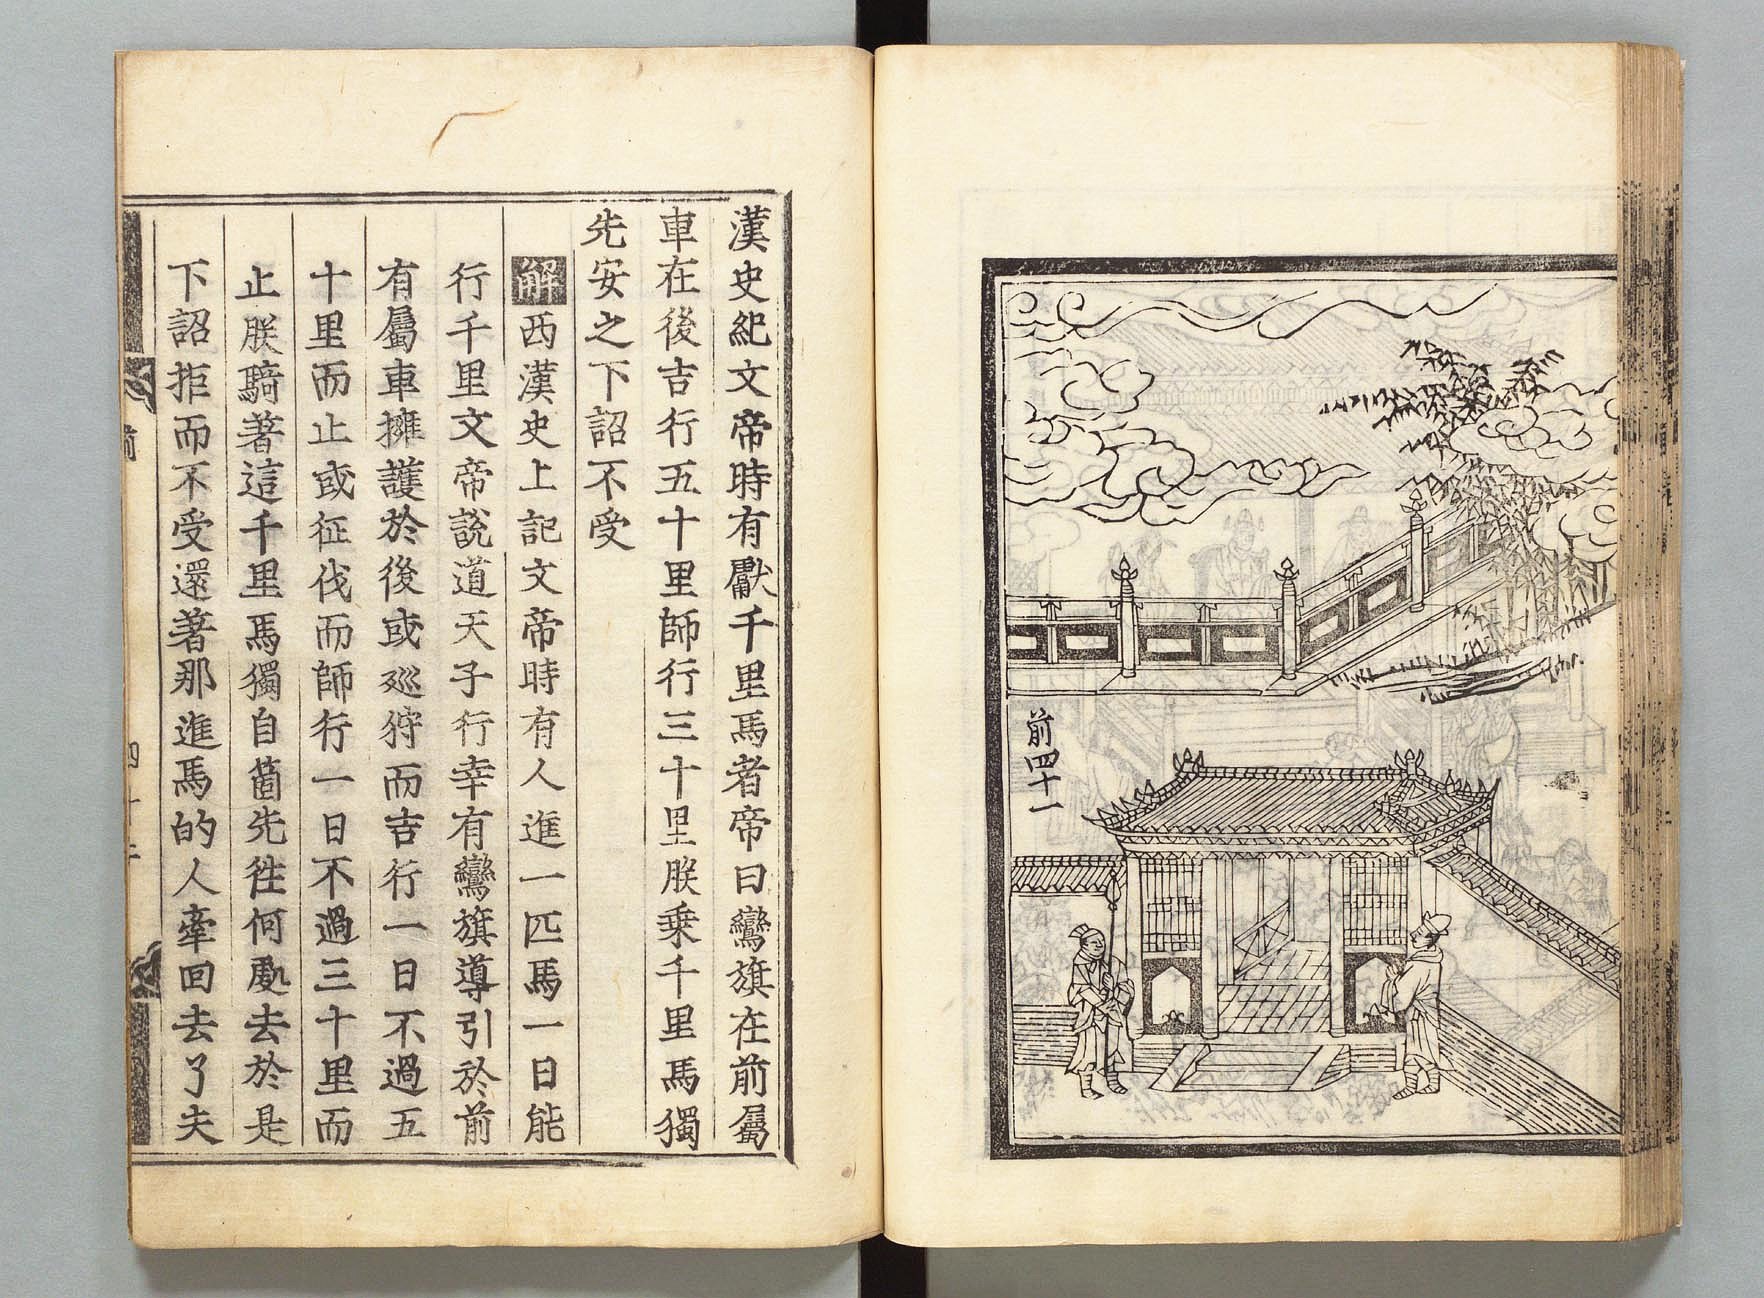 前四十一
漢史紀文帝時有獻千里馬者帝曰鸞旗在前屬
車在後吉行五十里師行三十里朕乗千里馬獨
先安之下詔不受
解西漢史上記文帝時有人進一匹馬一日能
行千里文帝說道天子行幸有鸞旗導引於前
有屬車擁護於後或廵狩而吉行一日不過五
十里而止或征伐而師行一日不過三十里而
止朕騎著這千里馬獨自箇先徃何處去於是
下詔拒而不受還著那進馬的人牽回去了夫